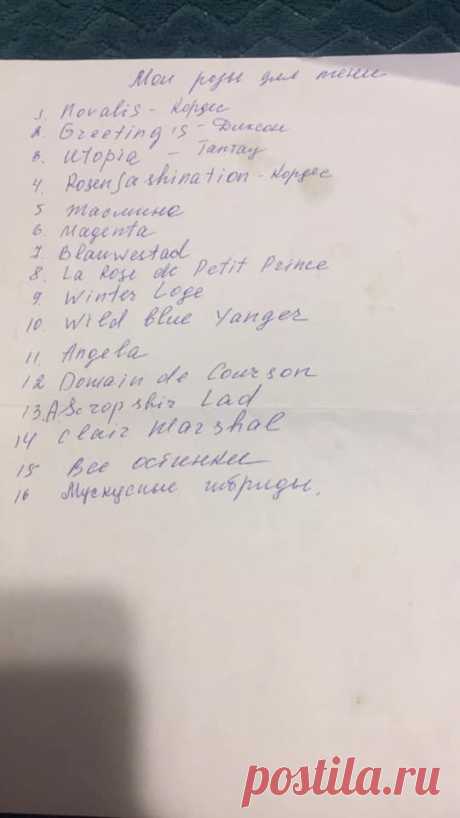 Мои розы для тени
1. Novalis - Кордес
2. Greeting's - Диксон
3. Utopia - Тантау
4. Rosenfashination - Кордес
5 Жасмина
6. Magenta
7. Blauwestad
8. La Rose de Petit Prince
9. Winter Loge
10. Wild blue Yanger
11. Angela
12 Domain de Courson
13. A Scropshir Lad
14 Clair Marshal
15 Все остинки
16 Мускусные гибриды.
postila.ru